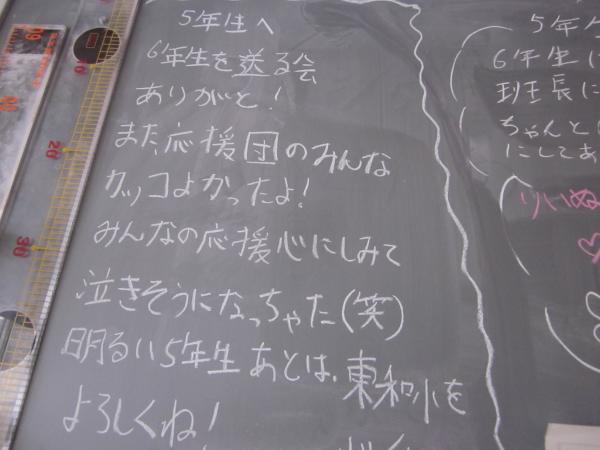 5年生へ
6年生を送る会
ありがと!
また、応援団のみんな
カッコよかったよ!
みんなの応援心にしみて
泣きそうになっちゃた(笑)
明るい5年生あとは、東和小を
よろしくね!
5年生
6年生に
班長に
ちゃんと
にしてあ
りいぬ
10
20
30